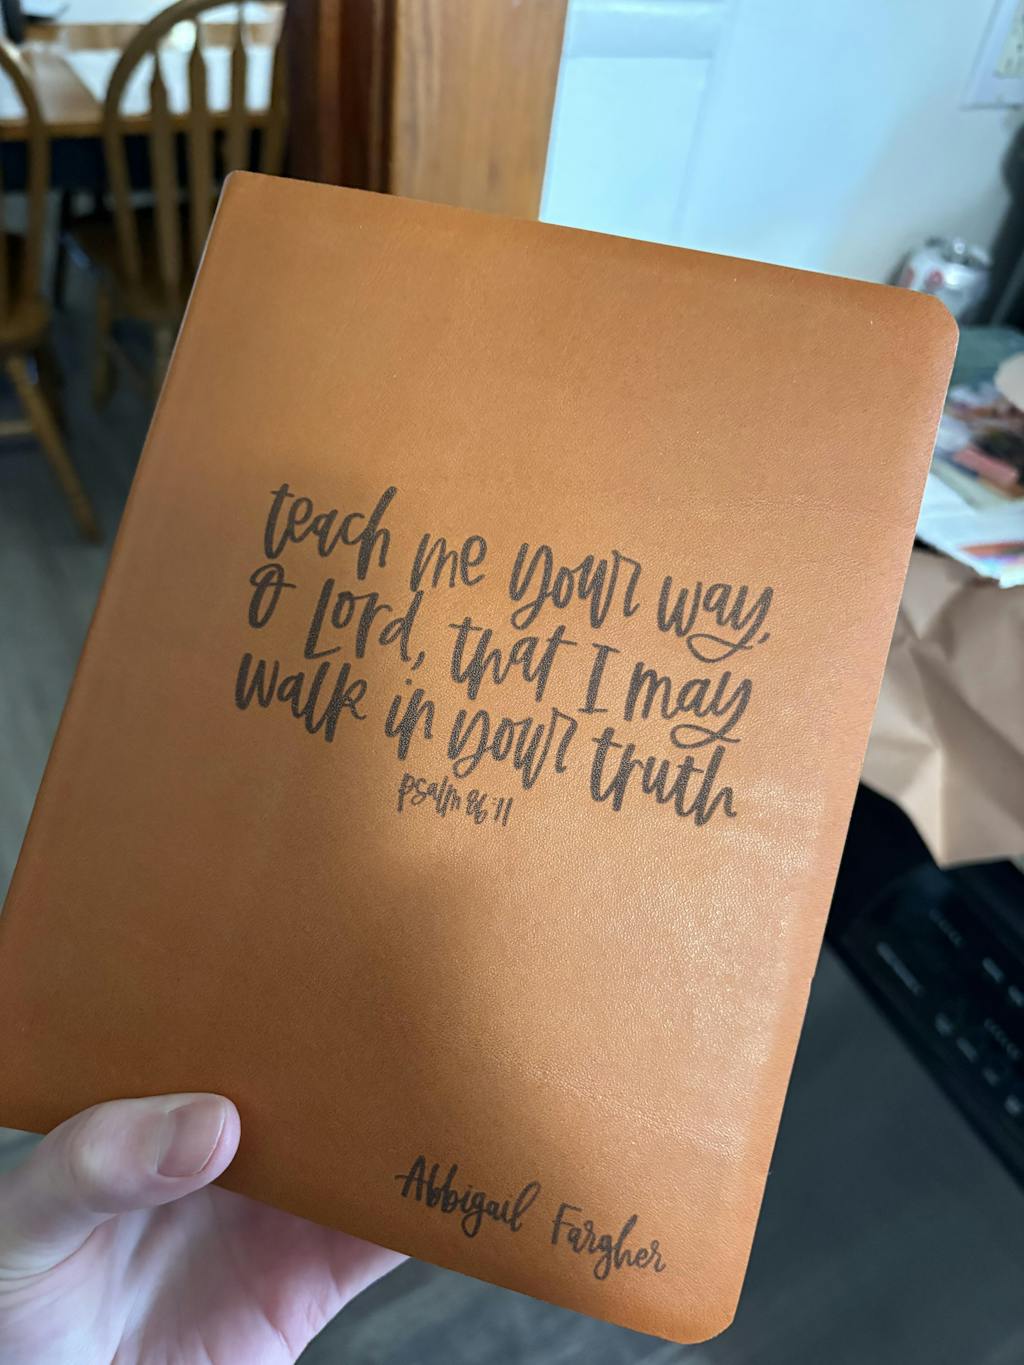 teach me your way,
O Lord, that I may
walk in your truth
psalm 86:11
Abbigail Fargher